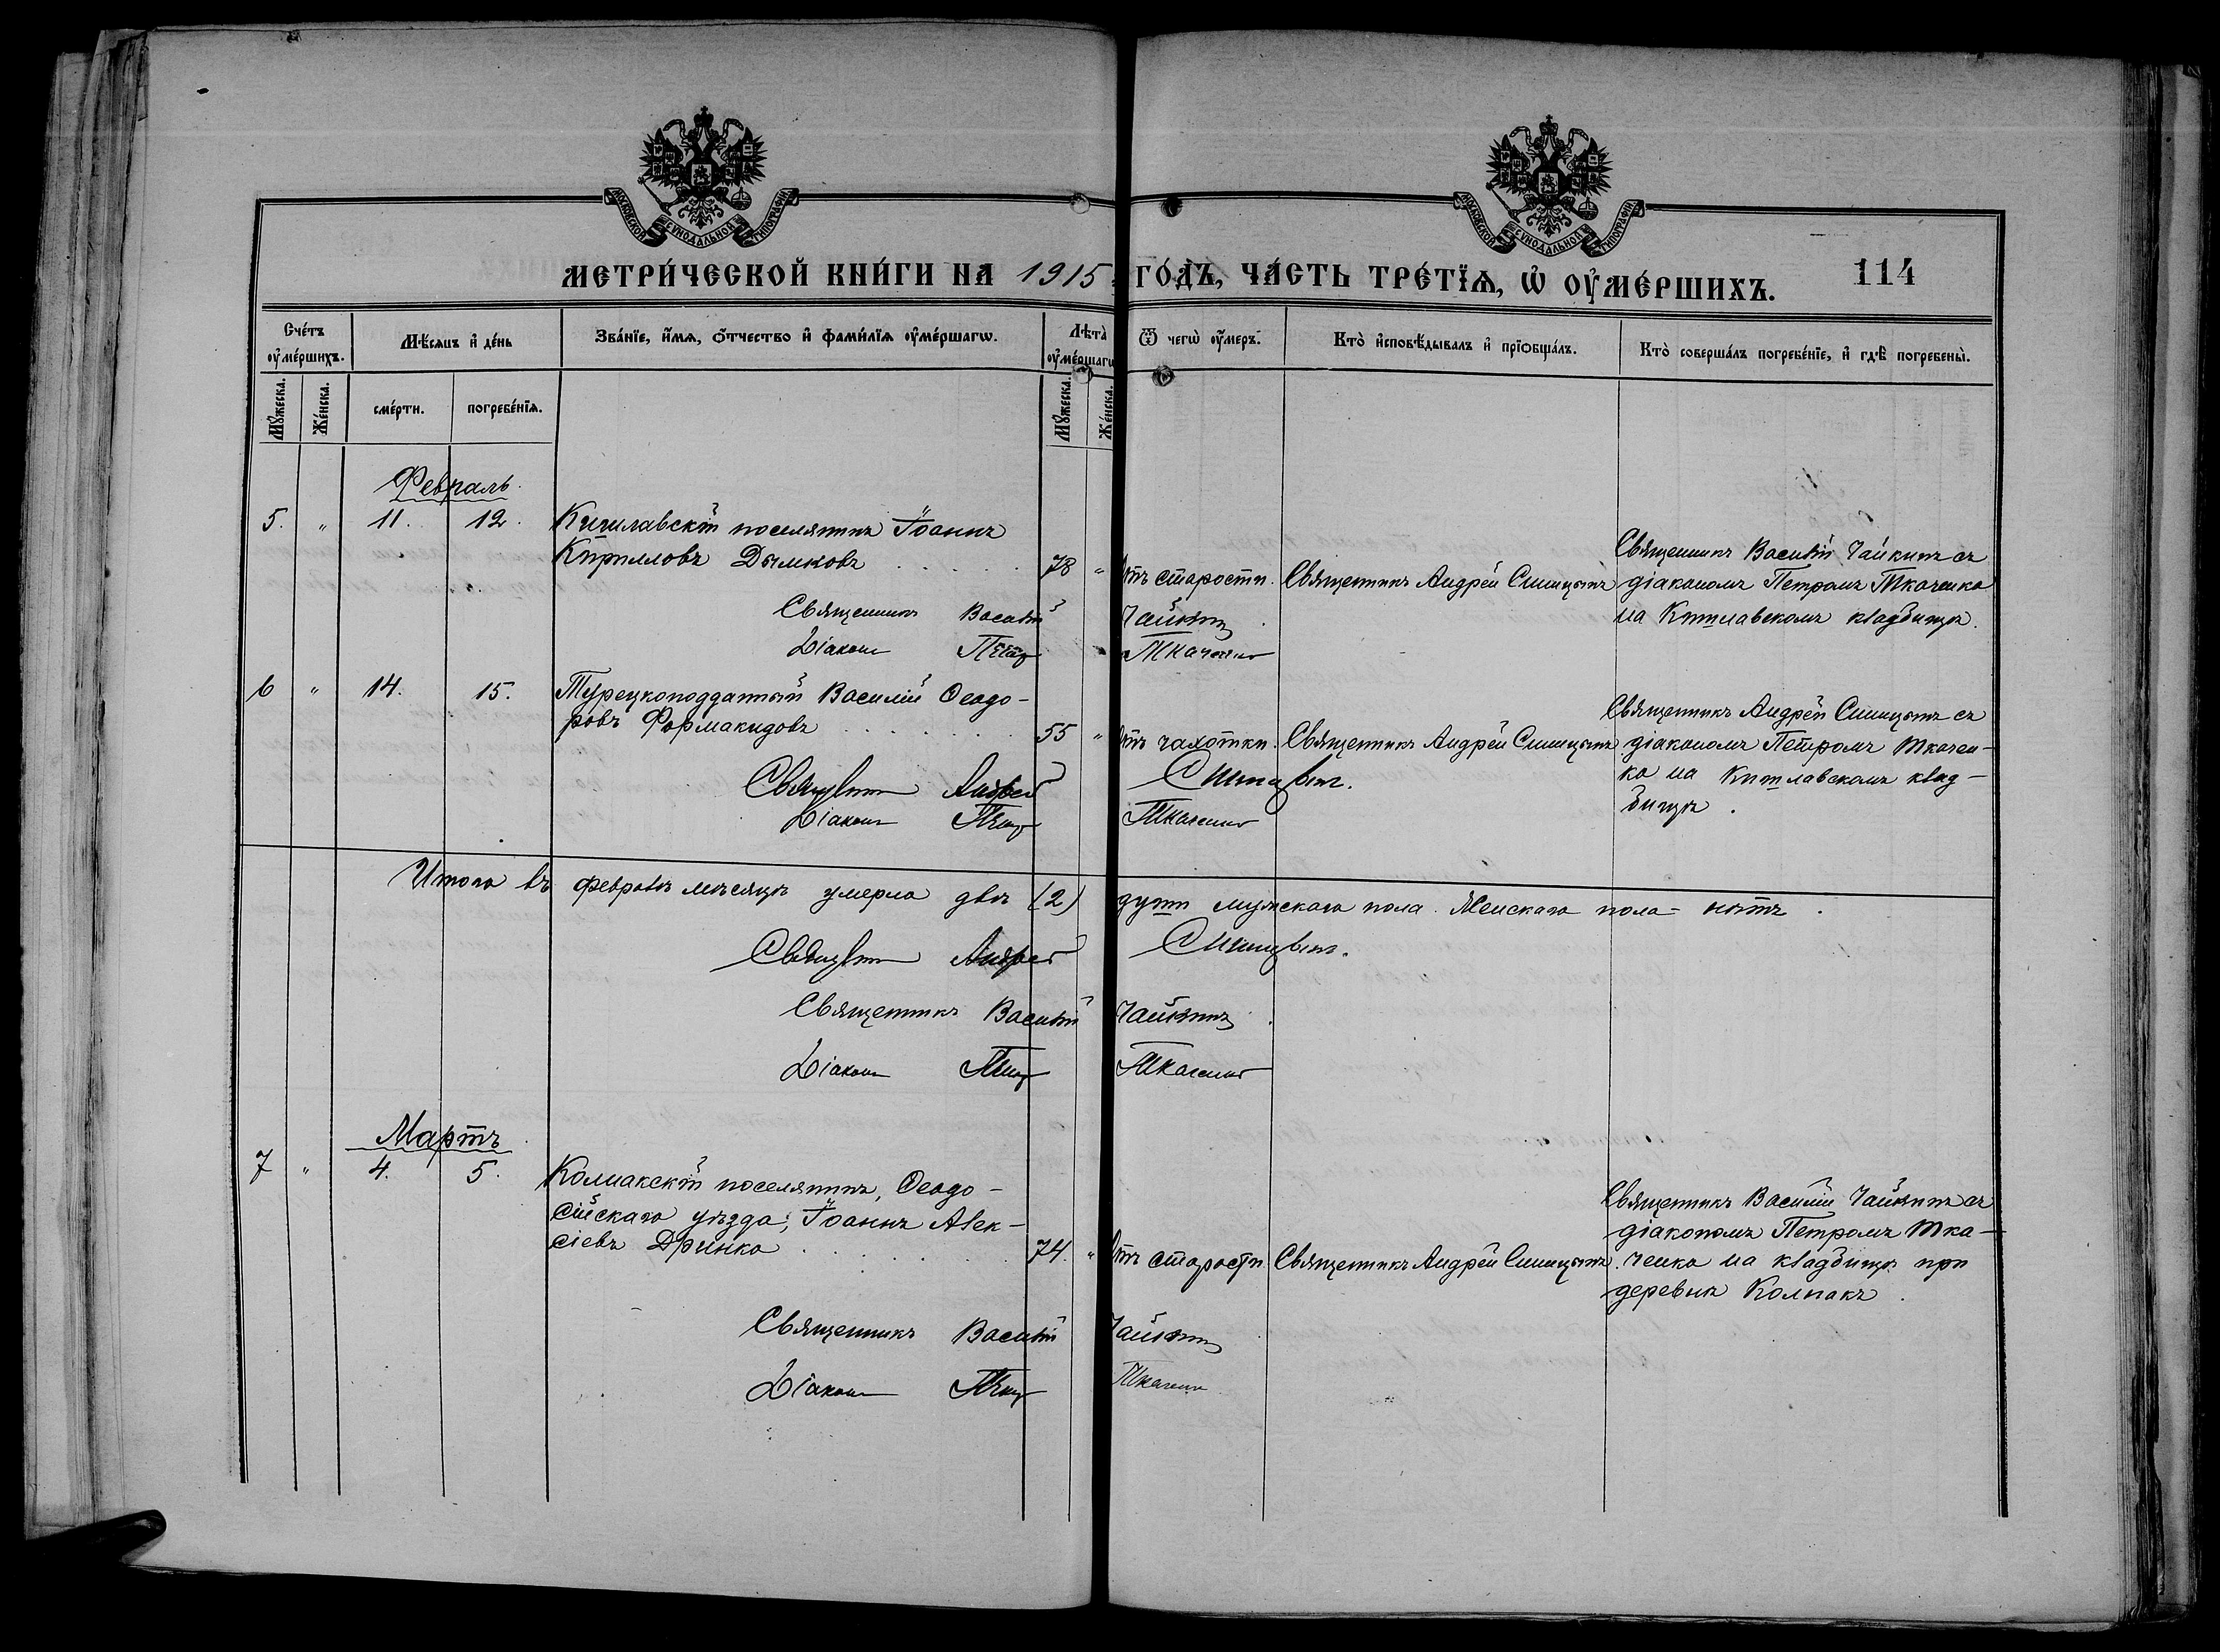 МОСКОВСКОЙ СУНОДАЛЬНОЙ ТИПОГРАФІИ
МОСКОВСКОЙ СУНОДАЛЬНОЙ ТИПОГРАФІИ
МЕТРИ́ЧЕСКОЙ КНИ́ГИ НА 1915 ГО́ДЪ, ЧА́СТЬ ТРЕ́ТЇѦ, Ѡ҆ ОУ҆МЕ́РШИХЪ. 114
Сче́тъ оу҆ме́ршихъ.
Мѣ́сѧцъ и҆ де́нь
Зва́нїе, и҆́мѧ, ѻ҆́тчество и҆ фами́лїѧ оу҆ме́ршагѡ.
Лѣта̀ оу҆ме́ршагѡ
Ѿ чегѡ̀ оу҆́меръ.
Кто̀ и҆сповѣ́дывалъ и҆ прїѻбща́лъ.
Кто̀ соверша́лъ погребе́нїе, и҆ гдѣ̀ погребены̀.
Мꙋ́жеска.
Же́нска.
сме́рти.
погребе́нїѧ.
Мꙋ́жеска.
Же́нска.
Февраль.
5. " 11. 12. Кишлавскій поселянинъ Іоаннъ
Кирилловъ Дымковъ 78 " отъ старости. Священникъ Андрей Синицынъ
Священникъ Василій Чайкинъ съ
діакономъ Петромъ Ткаченко
на Кишлавскомъ кладбищѣ.
Священникъ Василій Чайкинъ
Діаконъ Петръ Ткаченко
6 " 14. 15. Турецкоподданный Василій Ѳеодо-
ровъ Фармакидовъ 55 " отъ чахотки. Священникъ Андрей Синицынъ
Священникъ Андрей Синицынъ съ
діакономъ Петромъ Ткачен-
ко на Кишлавскомъ клад-
бищѣ.
Священникъ Андрей Синицынъ.
Діаконъ Петръ Ткаченко
Итого въ февралѣ мѣсяцѣ умерло двѣ (2) души мужскаго пола. Женскаго пола - нѣтъ.
Священникъ Андрей Синицынъ.
Священникъ Василій Чайкинъ
Діаконъ Петръ Ткаченко
Мартъ
7 " 4. 5. Колпакскій поселянинъ, Ѳеодо-
сійскаго уѣзда, Іоаннъ Алек-
сіевъ Дринко 74. " отъ старости Священникъ Андрей Синицынъ.
Священникъ Василій Чайкинъ съ
діакономъ Петромъ Тка-
ченко на кладбищѣ при
деревнѣ Колпакъ.
Священникъ Василій Чайкинъ
Діаконъ Петръ Ткаченко